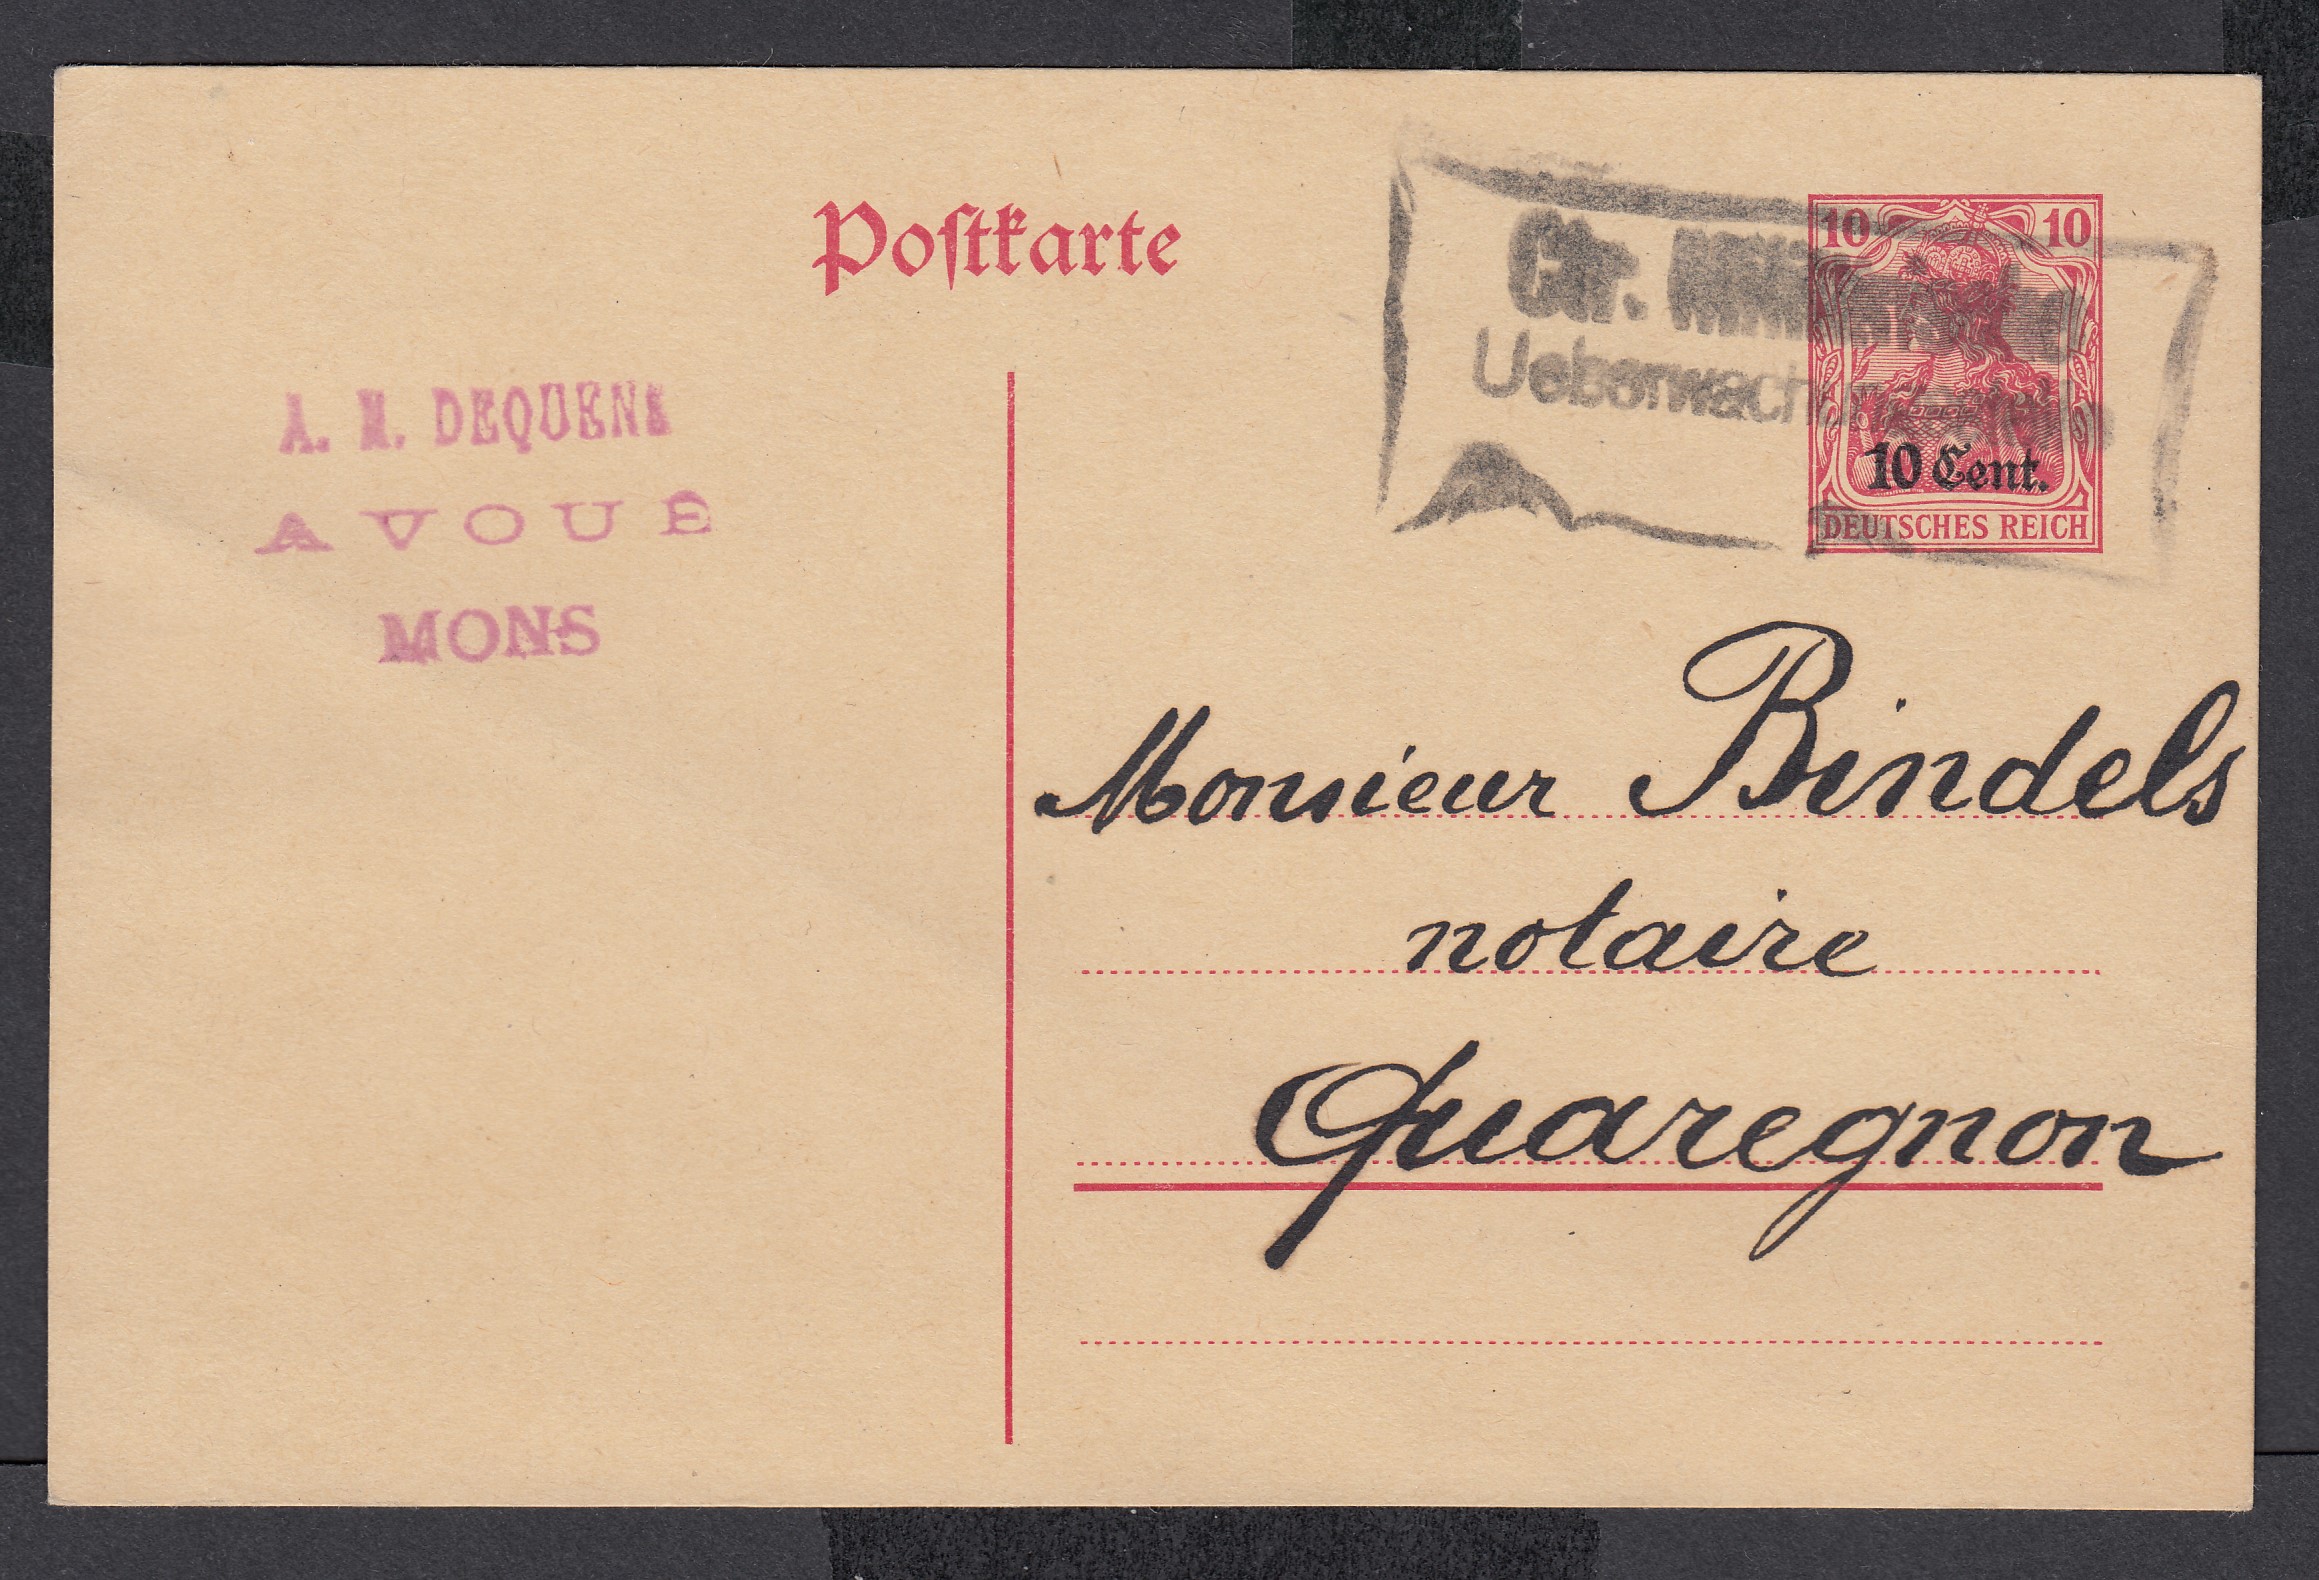 Postkarte
Gtr.
Ueberwach
10 10
10 Cent.
DEUTSCHES REICH
A. H. DEQUENE
AVOUÉ
MONS
Monsieur Bindels
notaire
Quaregnon